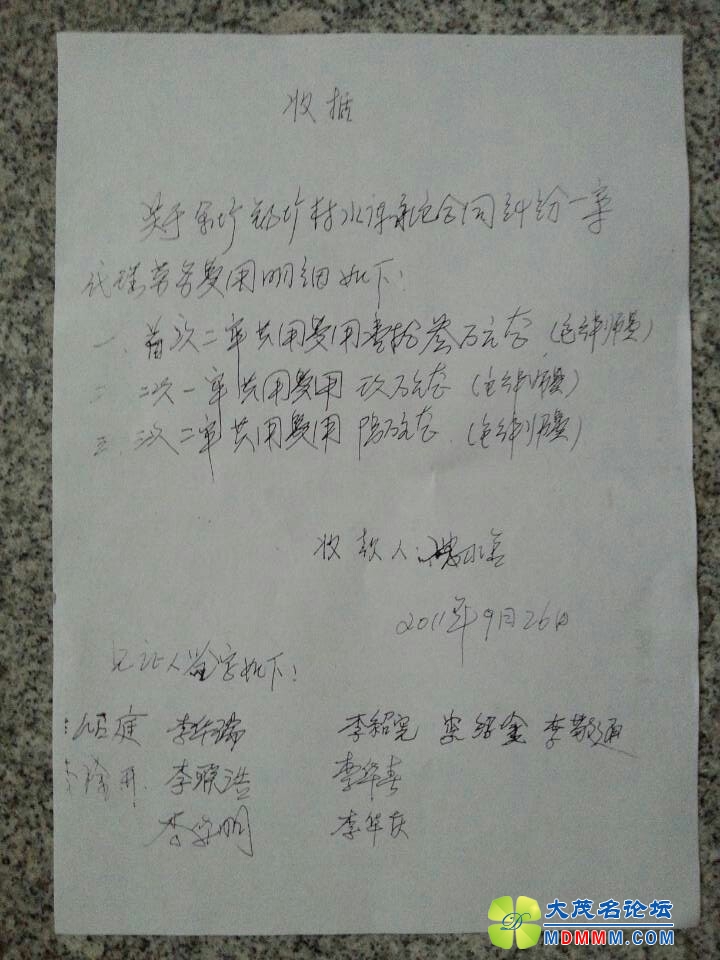 收据
关于 村水 承包合同纠纷一案
代理劳务费用明细如下：
一、首次二审共用费用壹拾叁万元整（包律师费）
二 二次一审共用费用 玖万元整（包律师费）
三、二次二审共用费用 陆万元整（包律师费）
收款人：
2011年9月26日
见证人签字如下：
李华瑞 李绍宪 李绍金 李敬通
李联浩 李华春
李宗明 李华庆
大茂名论坛
MDMMM.COM